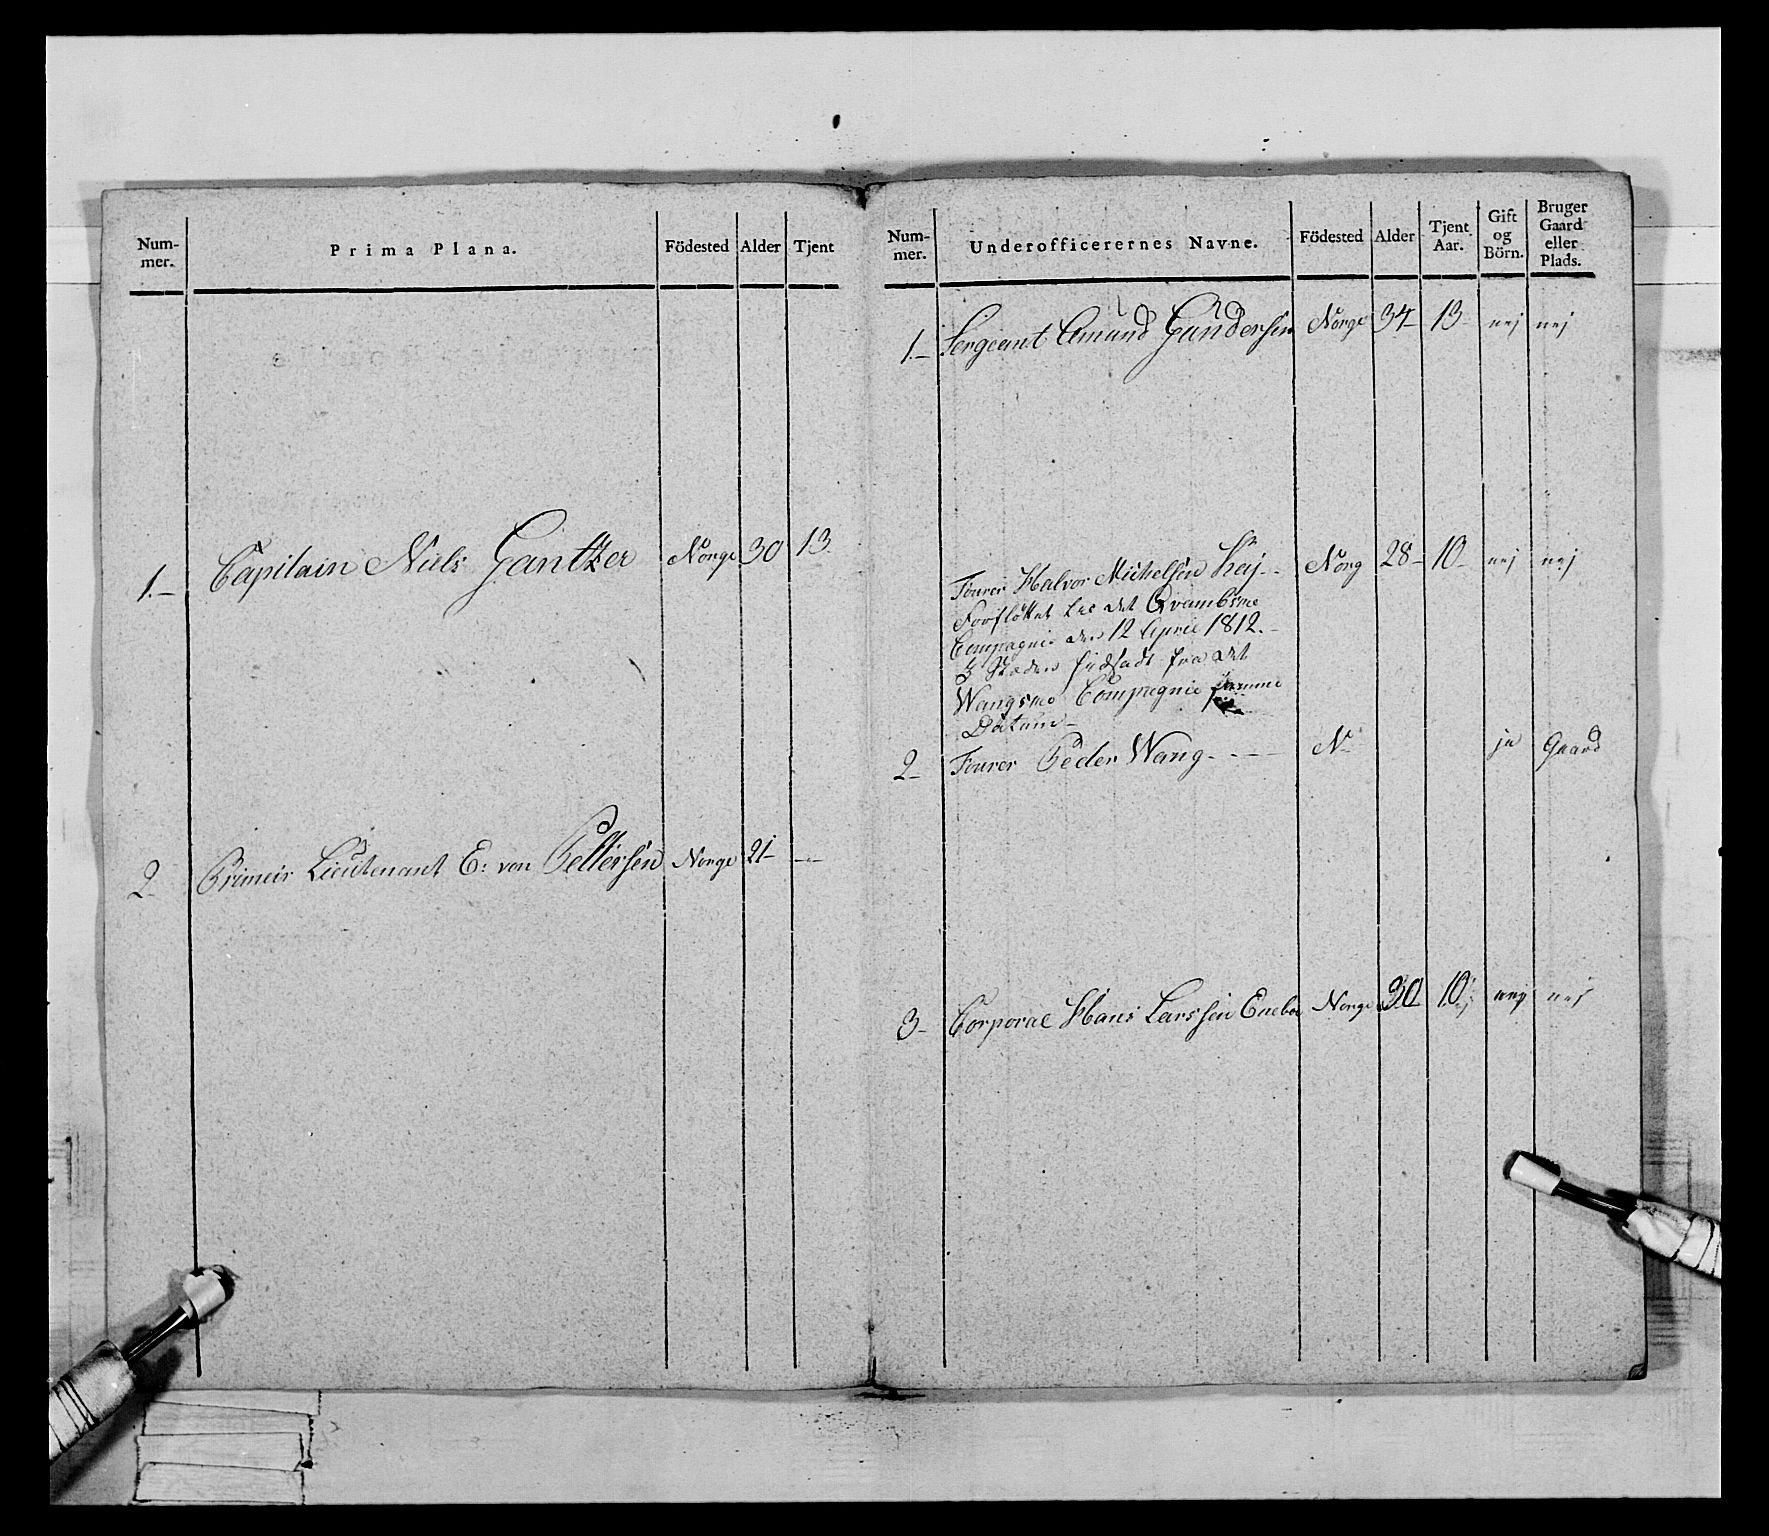 Num-
mer.
Prima Plana.
Födested
Alder
Tjent
1.- Capitain Niels Gantzer Norge 30 13
2 Primeir Lieutenant E: von Pettersen Norge 21- --
Num-
mer.
Underofficerernes Navne.
Födested
Alder
Tjent
Aar.
Gift
og
Börn.
Bruger
Gaard
eller
Plads.
1.- Sergeant Amund Gundersen Norge 34- 13- nej nej
Fourer Halvor Michelsen Norg 28- 10- nej nej
Forflöttet det
Compagnie den 12 April 1812.-
Stæden fra det
Wangsme Compagnie samme
Datum-
2- Fourer Peder Wang- - - - N ja Gaard
3- Corporal Hans Larssen Enebo Norge 30 10 nej nej